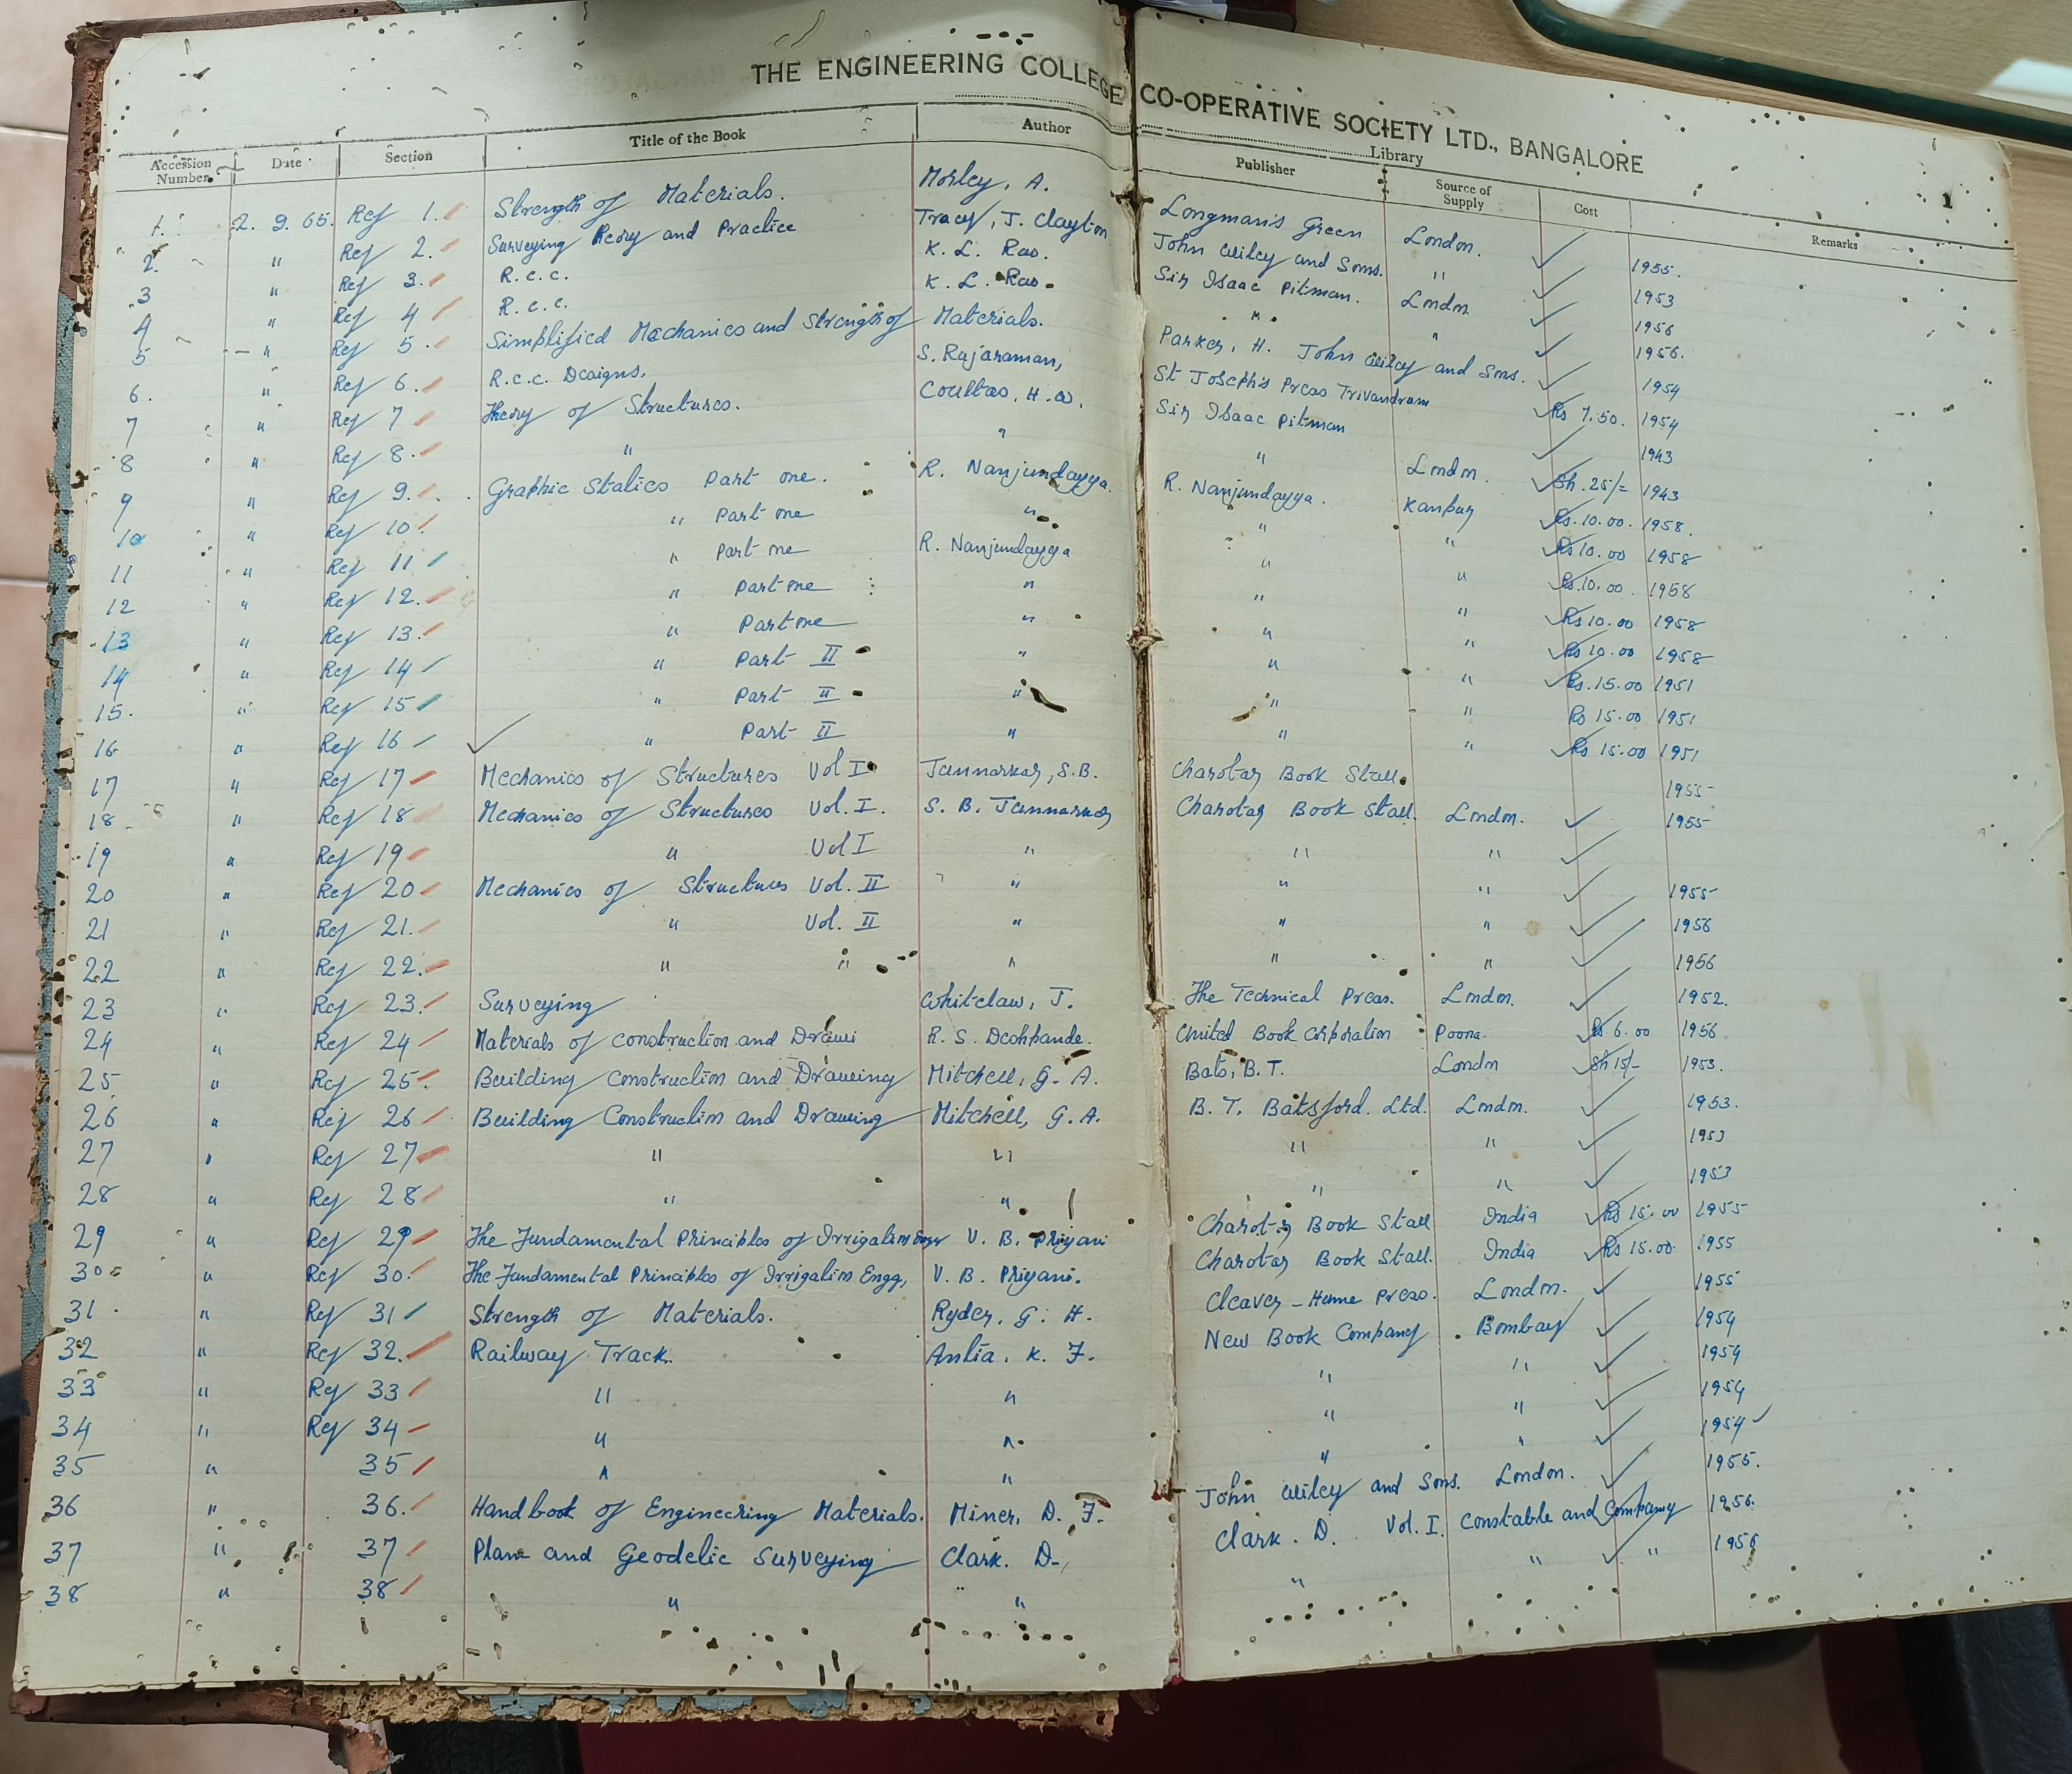 THE ENGINEERING COLLEGE CO-OPERATIVE SOCIETY LTD., BANGALORE
Library
1
Accession Number Date Section Title of the Book Author Publisher Source of Supply Cost Remarks
1. 2. 9. 65. Ref 1. Strength of Materials. Morley, A. Longman's Green London. ✓ 1955.
2. " Ref 2. Surveying Theory and Practice Tracy, J. Clayton John Wiley and Sons. " ✓ 1953
3 " Ref 3. R.C.C. K. L. Rao. Sir Isaac Pitman. London ✓ 1956
4 " Ref 4 R.C.C. K. L. Rao. " " ✓ 1956.
5 " Ref 5. Simplified Mechanics and Strength of Materials. Parker, H. John Wiley and Sons. ✓ 1954
6. " Ref 6. R.C.C. Designs. S. Rajaraman, St Joseph's Press Trivandrum ✓ Rs 7.50. 1954
7 " Ref 7 Theory of Structures. Coultas. H. W. Sir Isaac Pitman ✓ 1943
8 " Ref 8. " " " London. ✓ Sh. 25/= 1943
9 " Ref 9. Graphic Statics Part one. R. Nanjundayya. R. Nanjundayya. Kanpur ✓ Rs. 10.00. 1958.
10 " Ref 10 " Part one " " " ✓ Rs 10.00 1958
11 " Ref 11 " Part one R. Nanjundayya " " ✓ Rs. 10.00. 1958
12 " Ref 12. " Part one " " " ✓ Rs 10.00 1958
13 " Ref 13. " Part one " " " ✓ Rs 10.00 1958
14 " Ref 14 " Part II " " " ✓ Rs. 15.00 1951
15. " Ref 15 " Part II " " " Rs 15.00 1951
16 " Ref 16 ✓ " Part II " " " ✓ Rs 15.00 1951
17 " Ref 17 Mechanics of Structures Vol I Junnarkar, S.B. Charotar Book Stall. 1955
18 " Ref 18 Mechanics of Structures Vol. I. S. B. Junnarkar Charotar Book Stall. London. ✓ 1955
19 " Ref 19 " Vol I " " " ✓
20 " Ref 20 Mechanics of Structures Vol. II " " " ✓ 1955
21 " Ref 21. " Vol. II " " " ✓ 1956
22 " Ref 22. " " " " " ✓ 1956
23 " Ref 23. Surveying Whitelaw, J. The Technical Press. London. ✓ 1952.
24 " Ref 24 Materials of Construction and R. S. Deshpande. United Book Corporation Poona. ✓ Rs 6.00 1956
25 " Ref 25. Building Construction and Drawing Mitchell, G. A. Bats, B. T. London ✓ Sh 15/- 1953.
26 " Ref 26 Building Construction and Drawing Mitchell, G. A. B. T. Batsford. Ltd. London. ✓ 1953.
27 " Ref 27 " " " " ✓ 1953
28 " Ref 28 " " " " ✓ 1953
29 " Ref 29 The Fundamental Principles of Irrigation Engr V. B. Priyani Charotar Book Stall India ✓ Rs 15.00 1955
30 " Ref 30. The Fundamental Principles of Irrigation Engg, V. B. Priyani. Charotar Book Stall. India ✓ Rs 15.00. 1955
31 " Ref 31 Strength of Materials. Ryder, G. H. Cleaver - Hume Press. London. ✓ 1955
32 " Ref 32. Railway Track. Antia, K. F. New Book Company Bombay ✓ 1954
33 " Ref 33 " " " " ✓ 1954
34 " Ref 34 " " " " ✓ 1954
35 " 35 " " " " ✓ 1954 ✓
36 " 36. Handbook of Engineering Materials. Miner, D. F. John Wiley and Sons. London. ✓ 1955.
37 " 37 Plane and Geodetic Surveying Clark. D., Clark. D. Vol. I. Constable and Company 1956.
38 " 38 " " " " ✓ " 1956